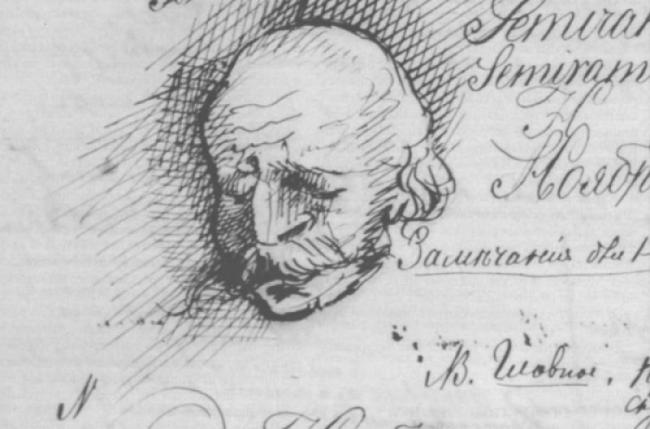 Semiram
Semiram
Н
Ноябр
Замѣчанія для
NB. Главное,
N